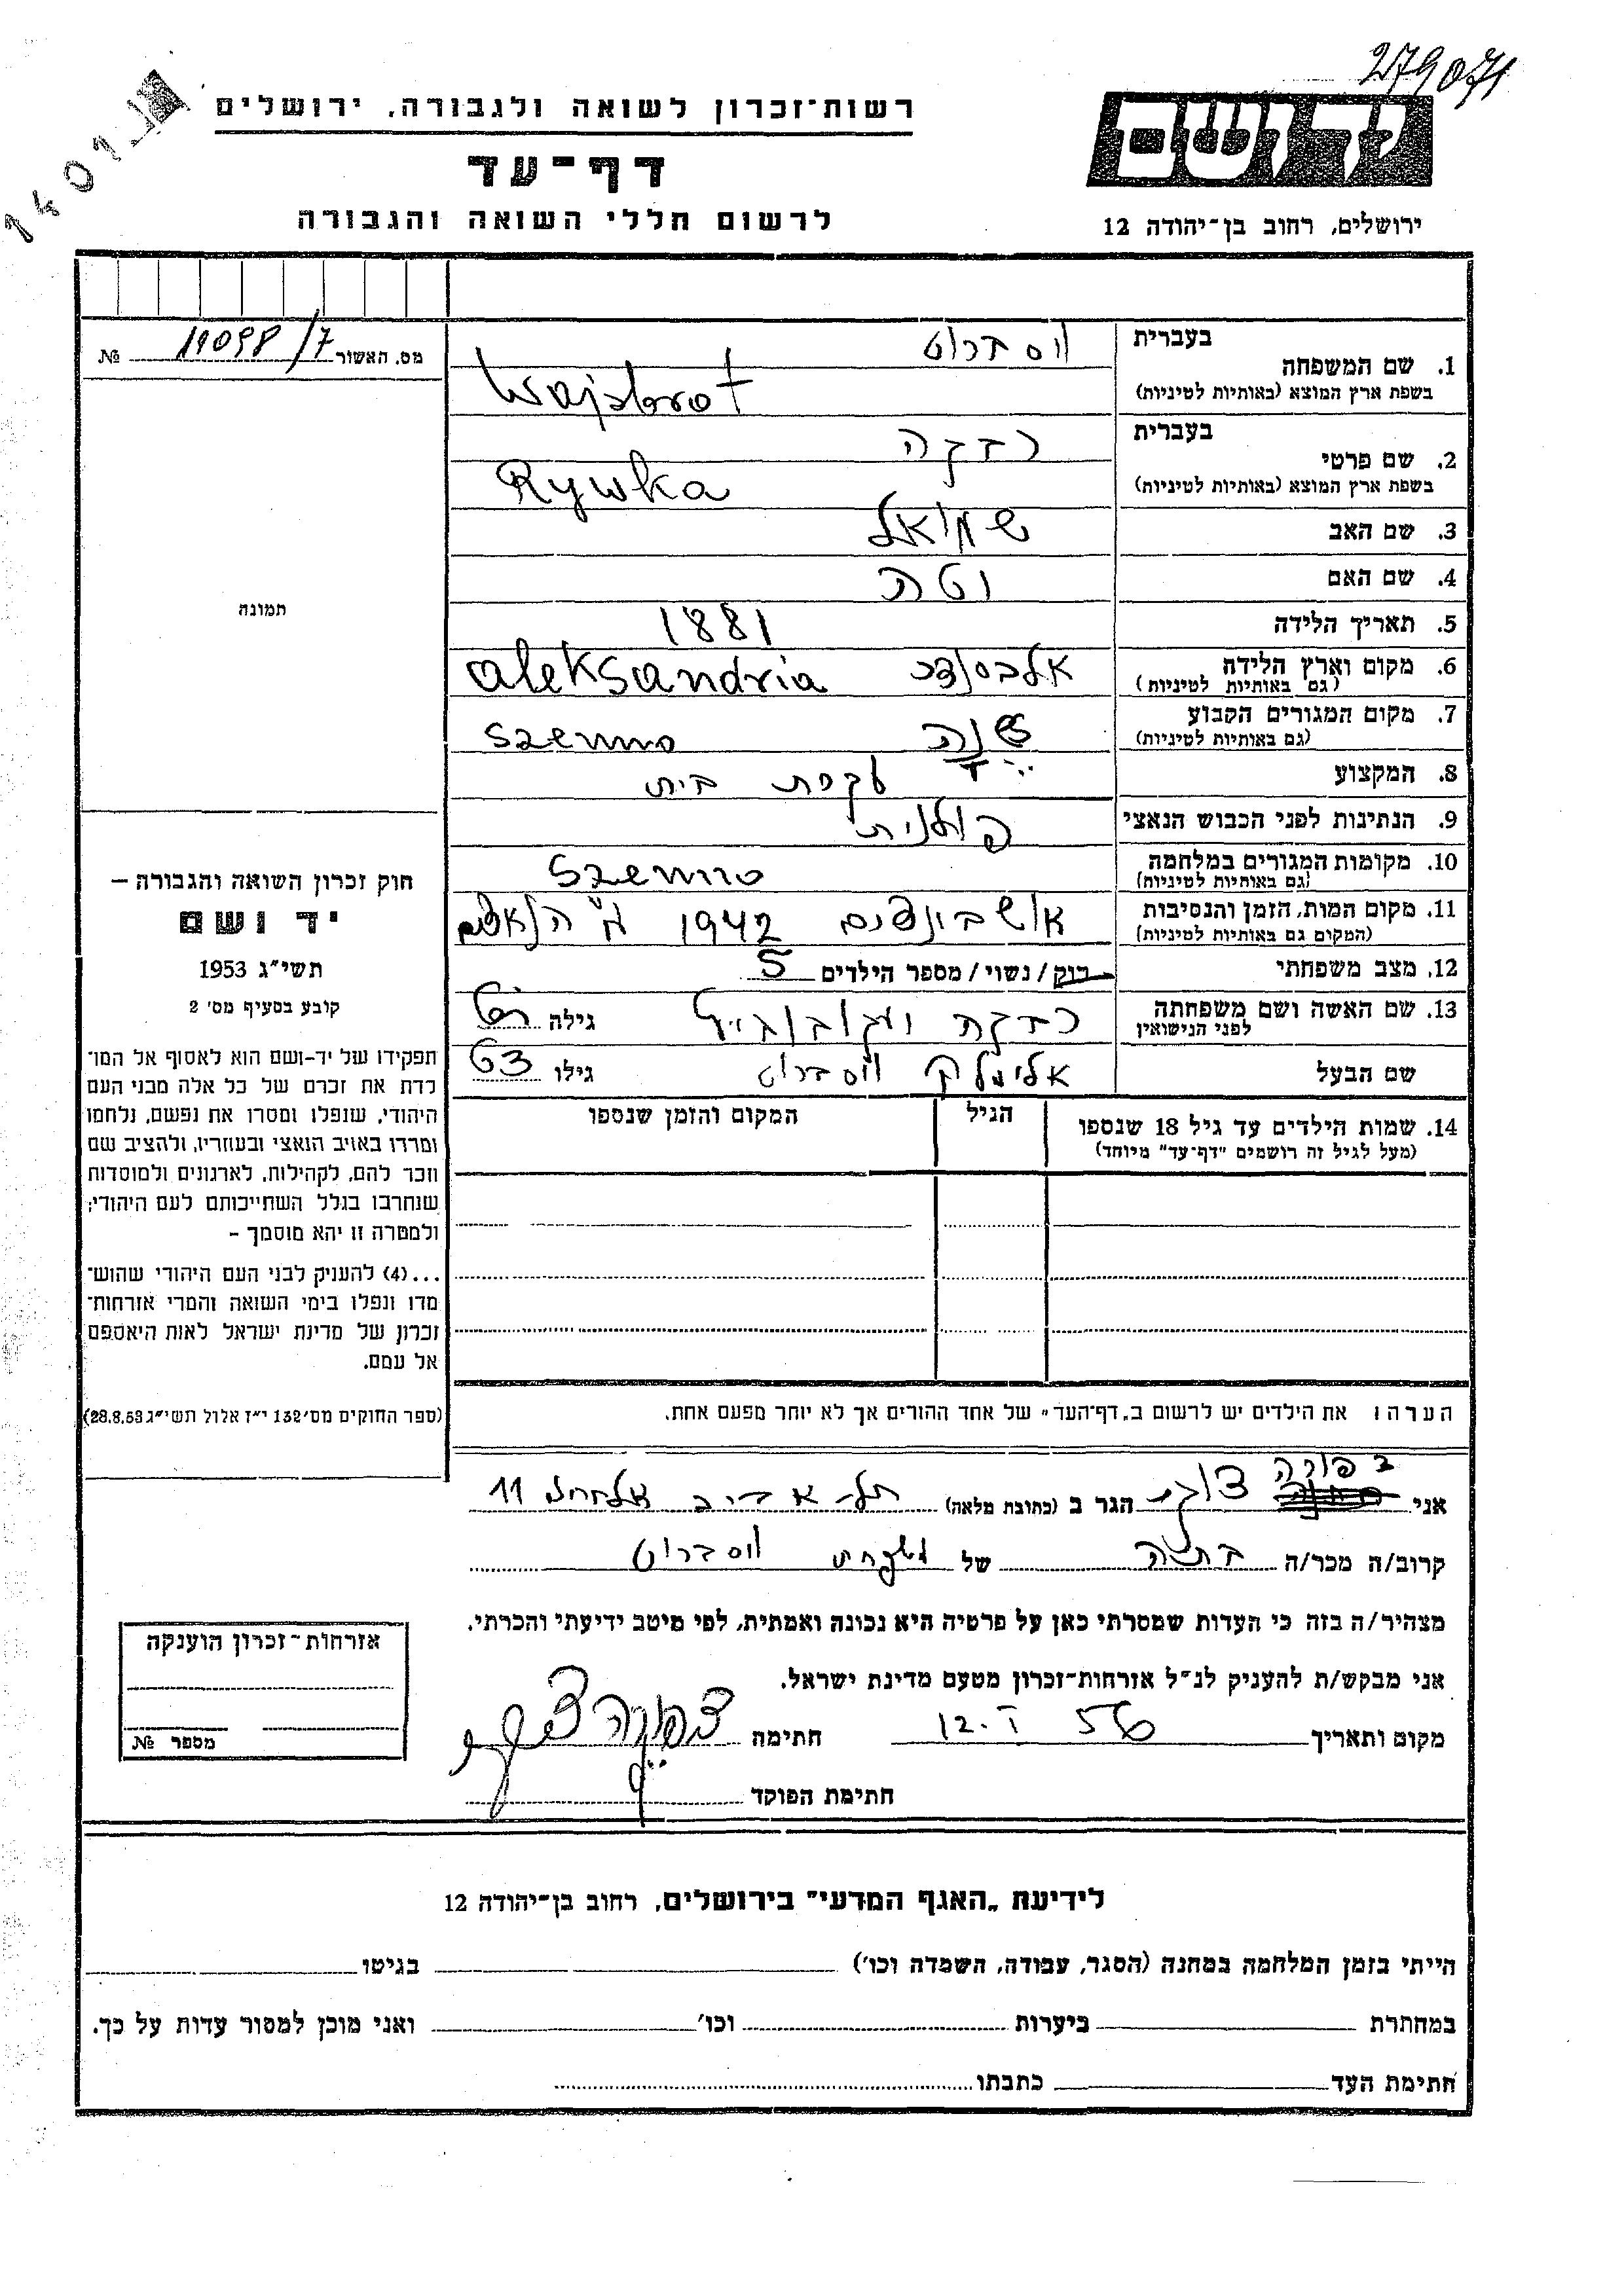 279071
רשות-זכרון לשואה ולגבורה, ירושלים
דף-עד
לרשום חללי השואה והגבורה
ירושלים, רחוב בן-יהודה 12
מס. האשור 11098/7 №
תמונה
חוק זכרון השואה והגבורה —
יד ושם
תשי"ג 1953
קובע בסעיף מס' 2
תפקידו של יד-ושם הוא לאסוף אל המו־
לדת את זכרם של כל אלה מבני העם
היהודי, שנפלו ומסרו את נפשם, נלחמו
ומרדו באויב הנאצי ובעוזריו, ולהציב שם
וזכר להם, לקהילות, לארגונים ולמוסדות
שנחרבו בגלל השתייכותם לעם היהודי;
ולמטרה זו יהא מוסמך –
...(4) להעניק לבני העם היהודי שהוש־
מדו ונפלו בימי השואה והמרי אזרחות־
זכרון של מדינת ישראל לאות היאספם
אל עמם.
(ספר החוקים מס' 132 י"ז אלול תשי"ג 28.8.53)
1. שם המשפחה
בעברית וויסברוט
בשפת ארץ המוצא (באותיות לטיניות) Wajsbrot
2. שם פרטי
בעברית רבקה
בשפת ארץ המוצא (באותיות לטיניות) Rywka
3. שם האב שמואל
4. שם האם
5. תאריך הלידה 1881
6. מקום וארץ הלידה
(גם באותיות לטיניות) Aleksandria
7. מקום המגורים הקבוע
(גם באותיות לטיניות)
8. המקצוע עקרת בית
9. הנתינות לפני הכבוש הנאצי פולנית
10. מקומות המגורים במלחמה
(גם באותיות לטיניות)
11. מקום המות, הזמן והנסיבות
(המקום גם באותיות לטיניות) 1942 ע"י הנאצים
12. מצב משפחתי רוק/נשוי/מספר הילדים 5
13. שם האשה ושם משפחתה
לפני הנישואין רבקה גילה
שם הבעל אלימלך וויסברוט גילו 63
14. שמות הילדים עד גיל 18 שנספו
(מעל לגיל זה רושמים "דף-עד" מיוחד)
הגיל
המקום והזמן שנספו
הערה: את הילדים יש לרשום ב"דף-העד" של אחד ההורים אך לא יותר מפעם אחת.
אני צפורה הגר ב (כתובת מלאה) תל-אביב 11
קרוב/ה מכר/ה של משפחת וויסברוט
מצהיר/ה בזה כי העדות שמסרתי כאן על פרטיה היא נכונה ואמתית, לפי מיטב ידיעתי והכרתי.
אני מבקש/ת להעניק לנ"ל אזרחות-זכרון מטעם מדינת ישראל.
מקום ותאריך 56 12.I חתימה
חתימת הפוקד
אזרחות-זכרון הוענקה
מספר №
לידיעת "האגף המדעי" בירושלים, רחוב בן-יהודה 12
הייתי בזמן המלחמה במחנה (הסגר, עבודה, השמדה וכו') בגיטו
במחתרת ביערות וכו' ואני מוכן למסור עדות על כך.
חתימת העד כתבתו